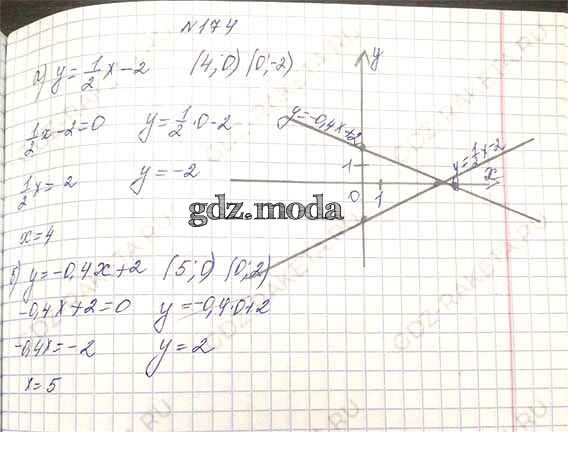 N 174
а) y = 1/2 x - 2 (4;0) (0;-2)
1/2 x - 2 = 0 y = 1/2 · 0 - 2
1/2 x = 2 y = -2
x = 4
б) y = -0,4x + 2 (5;0) (0;2)
-0,4x + 2 = 0 y = -0,4·0 + 2
-0,4x = -2 y = 2
x = 5
y
y = -0,4x + 2
y = 1/2 x - 2
x
1
0 1
gdz.moda
GDZ-RAKETA.RU